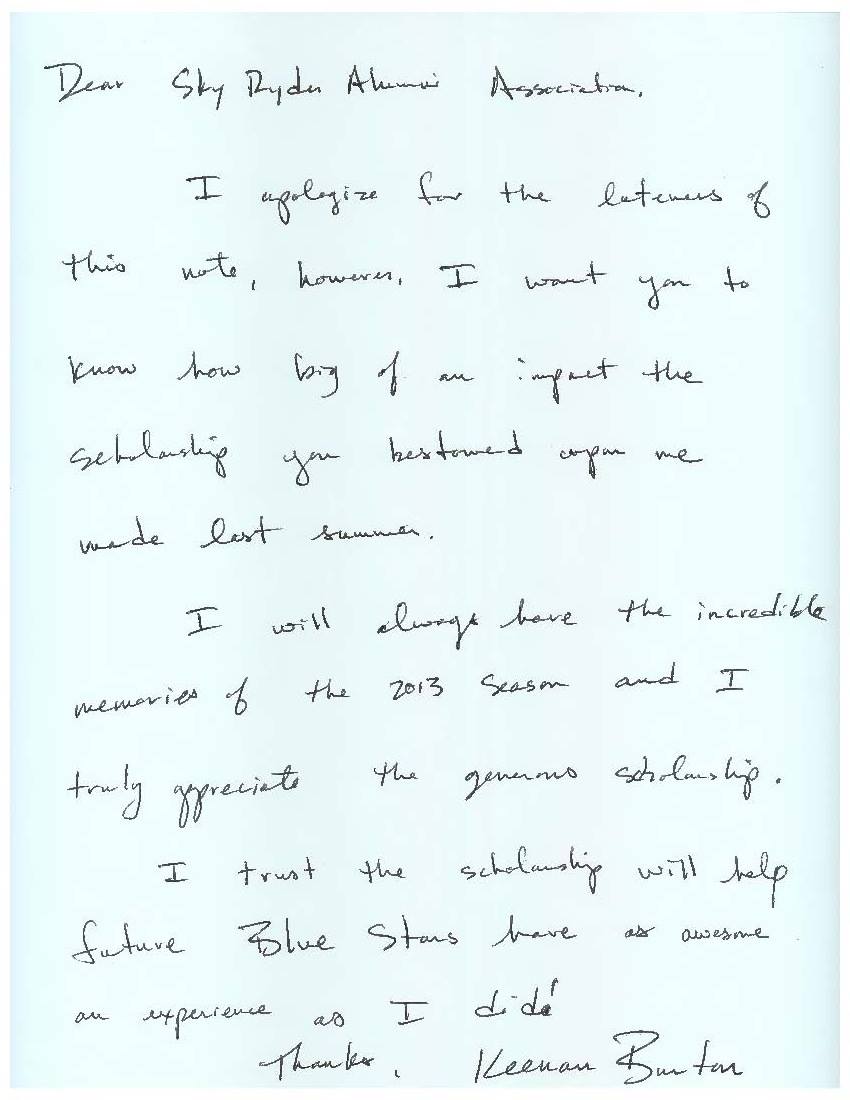 Dear Sky Ryder Alumni Association,
I apologize for the lateness of
this note, however, I want you to
know how big of an impact the
scholarship you bestowed upon me
made last summer.
I will always have the incredible
memories of the 2013 season and I
truly appreciate the generous scholarship.
I trust the scholarship will help
future Blue Stars have as awesome
an experience as I did!
Thanks, Keenan Burton